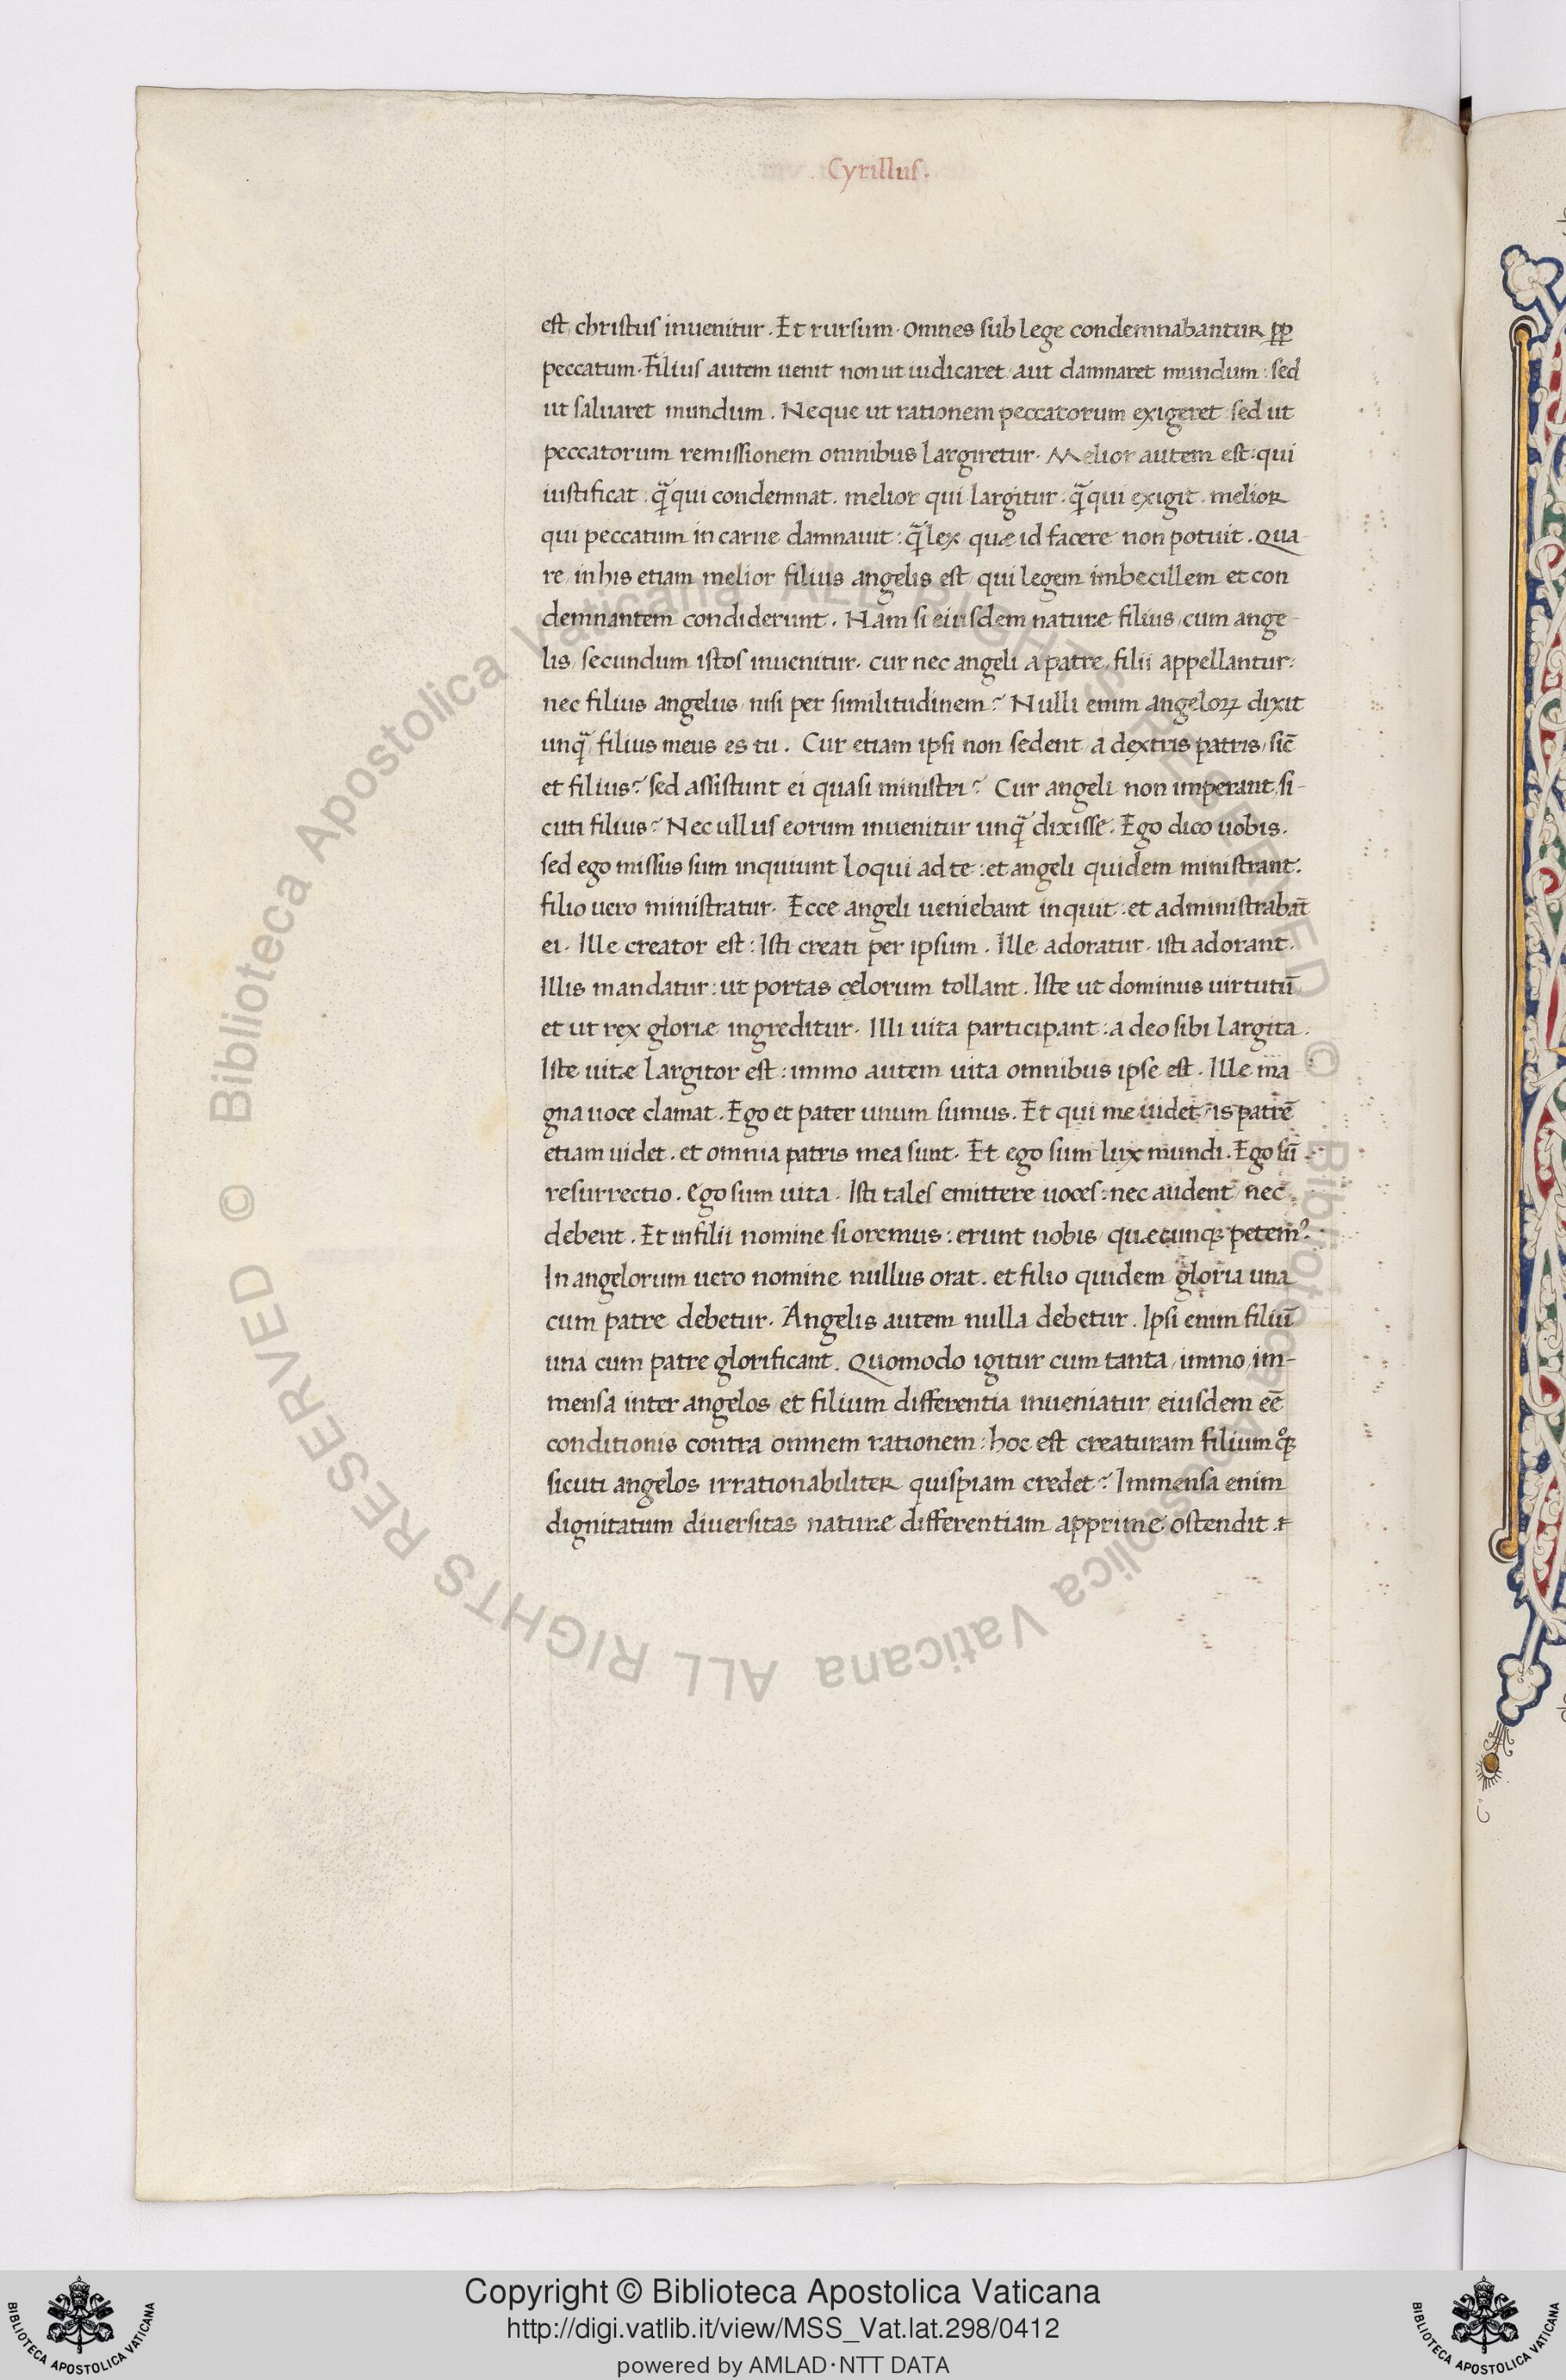 Cyrillus.
est christus inuenitur. Et rursum. Omnes sub lege condemnabantur ꝓp
peccatum. Filius autem uenit non ut iudicaret aut damnaret mundum: sed
ut saluaret mundum. Neque ut rationem peccatorum exigeret sed ut
peccatorum remissionem omnibus largiretur. Melior autem est: qui
iustificat. q̃ qui condemnat. melior qui largitur. q̃ qui exigit. melior
qui peccatum in carne damnauit: q̃ lex, quæ id facere non potuit. Qua
re, in his etiam melior filius angelis est, qui legem imbecillem et con
demnantem condiderunt. Nam si eiusdem naturæ filius, cum ange-
lis, secundum istos inuenitur. cur nec angeli a patre, filii appellantur:
nec filius angelus, nisi per similitudinem? Nulli enim angeloꝝ dixit
unq̃, filius meus es tu. Cur etiam ipsi non sedent, a dextris patris, sic̄
et filius? sed assistunt ei quasi ministri? Cur angeli non imperant, si-
cuti filius? Nec ullus eorum inuenitur unq̃ dixisse. Ego dico uobis.
sed ego missus sum inquiunt loqui ad te: et angeli quidem ministrant.
filio uero ministratur. Ecce angeli ueniebant inquit: et administrabāt
ei. Ille creator est: Isti creati per ipsum. Ille adoratur. isti adorant.
Illis mandatur: ut portas cęlorum tollant. Iste ut dominus uirtutū,
et ut rex gloriæ ingreditur. Illi uita participant: a deo sibi largita.
Iste uitæ largitor est: immo autem uita omnibus ipse est. Ille ma
gna uoce clamat. Ego et pater unum sumus. Et qui me uidet, is patrē
etiam uidet. et omnia patris mea sunt. Et ego sum lux mundi. Ego sū
resurrectio. Ego sum uita. Isti tales emittere uoces: nec audent, nec
debent. Et in filii nomine si oremus: erunt nobis, quæcunqꝫ petemꝰ.
In angelorum uero nomine nullus orat. et filio quidem gloria una
cum patre debetur. Angelis autem nulla debetur. Ipsi enim filiū
una cum patre glorificant. Quomodo igitur cum tanta, immo, im-
mensa inter angelos, et filium differentia inueniatur, eiusdem eē
conditionis contra omnem rationem: hoc est creaturam filium qͦꝫ
sicuti angelos irrationabiliter quispiam credet? Immensa enim
dignitatum diuersitas naturæ differentiam apprime ostendit.
© Biblioteca Apostolica Vaticana ALL RIGHTS RESERVED
© Biblioteca Apostolica Vaticana ALL RIGHTS RESERVED
Copyright © Biblioteca Apostolica Vaticana
http://digi.vatlib.it/view/MSS_Vat.lat.298/0412
powered by AMLAD·NTT DATA
BIBLIOTECA APOSTOLICA VATICANA
BIBLIOTECA APOSTOLICA VATICANA